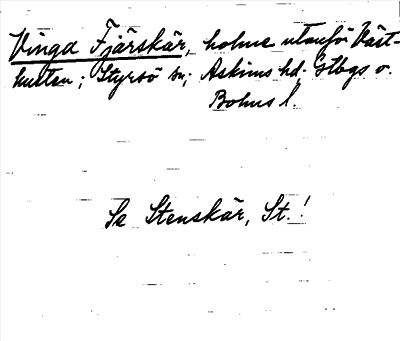 Vinga Fjärskär, holme utanför Väst-
kusten; Styrsö sn; Askims hd. Gtbgs o.
Bohus l.
Se Stenskär, St.!